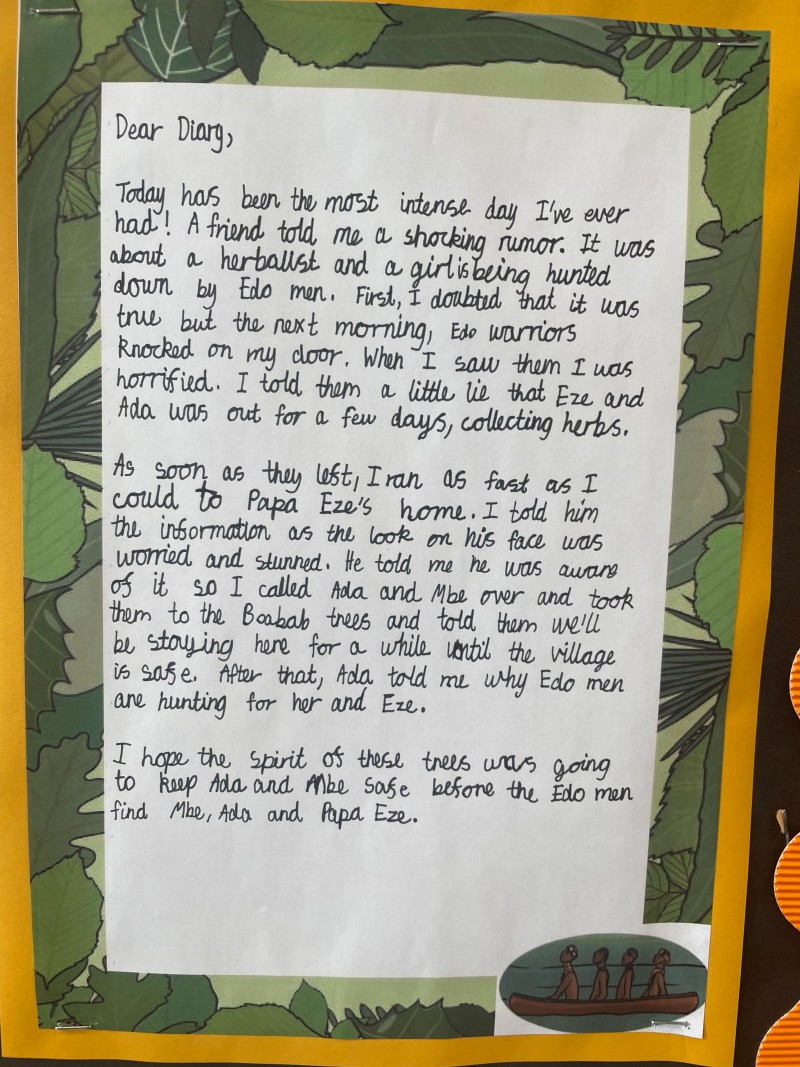 Dear Diary,
Today has been the most intense day I've ever
had! A friend told me a shocking rumor. It was
about a herbalist and a girl is being hunted
down by Edo men. First, I doubted that it was
true but the next morning, Edo warriors
knocked on my door. When I saw them I was
horrified. I told them a little lie that Eze and
Ada was out for a few days, collecting herbs.
As soon as they left, I ran as fast as I
could to Papa Eze's home. I told him
the information as the look on his face was
worried and stunned. He told me he was aware
of it so I called Ada and Mbe over and took
them to the Boabab trees and told them we'll
be staying here for a while until the village
is safe. After that, Ada told me why Edo men
are hunting for her and Eze.
I hope the spirit of these trees was going
to keep Ada and Mbe safe before the Edo men
find Mbe, Ada and Papa Eze.